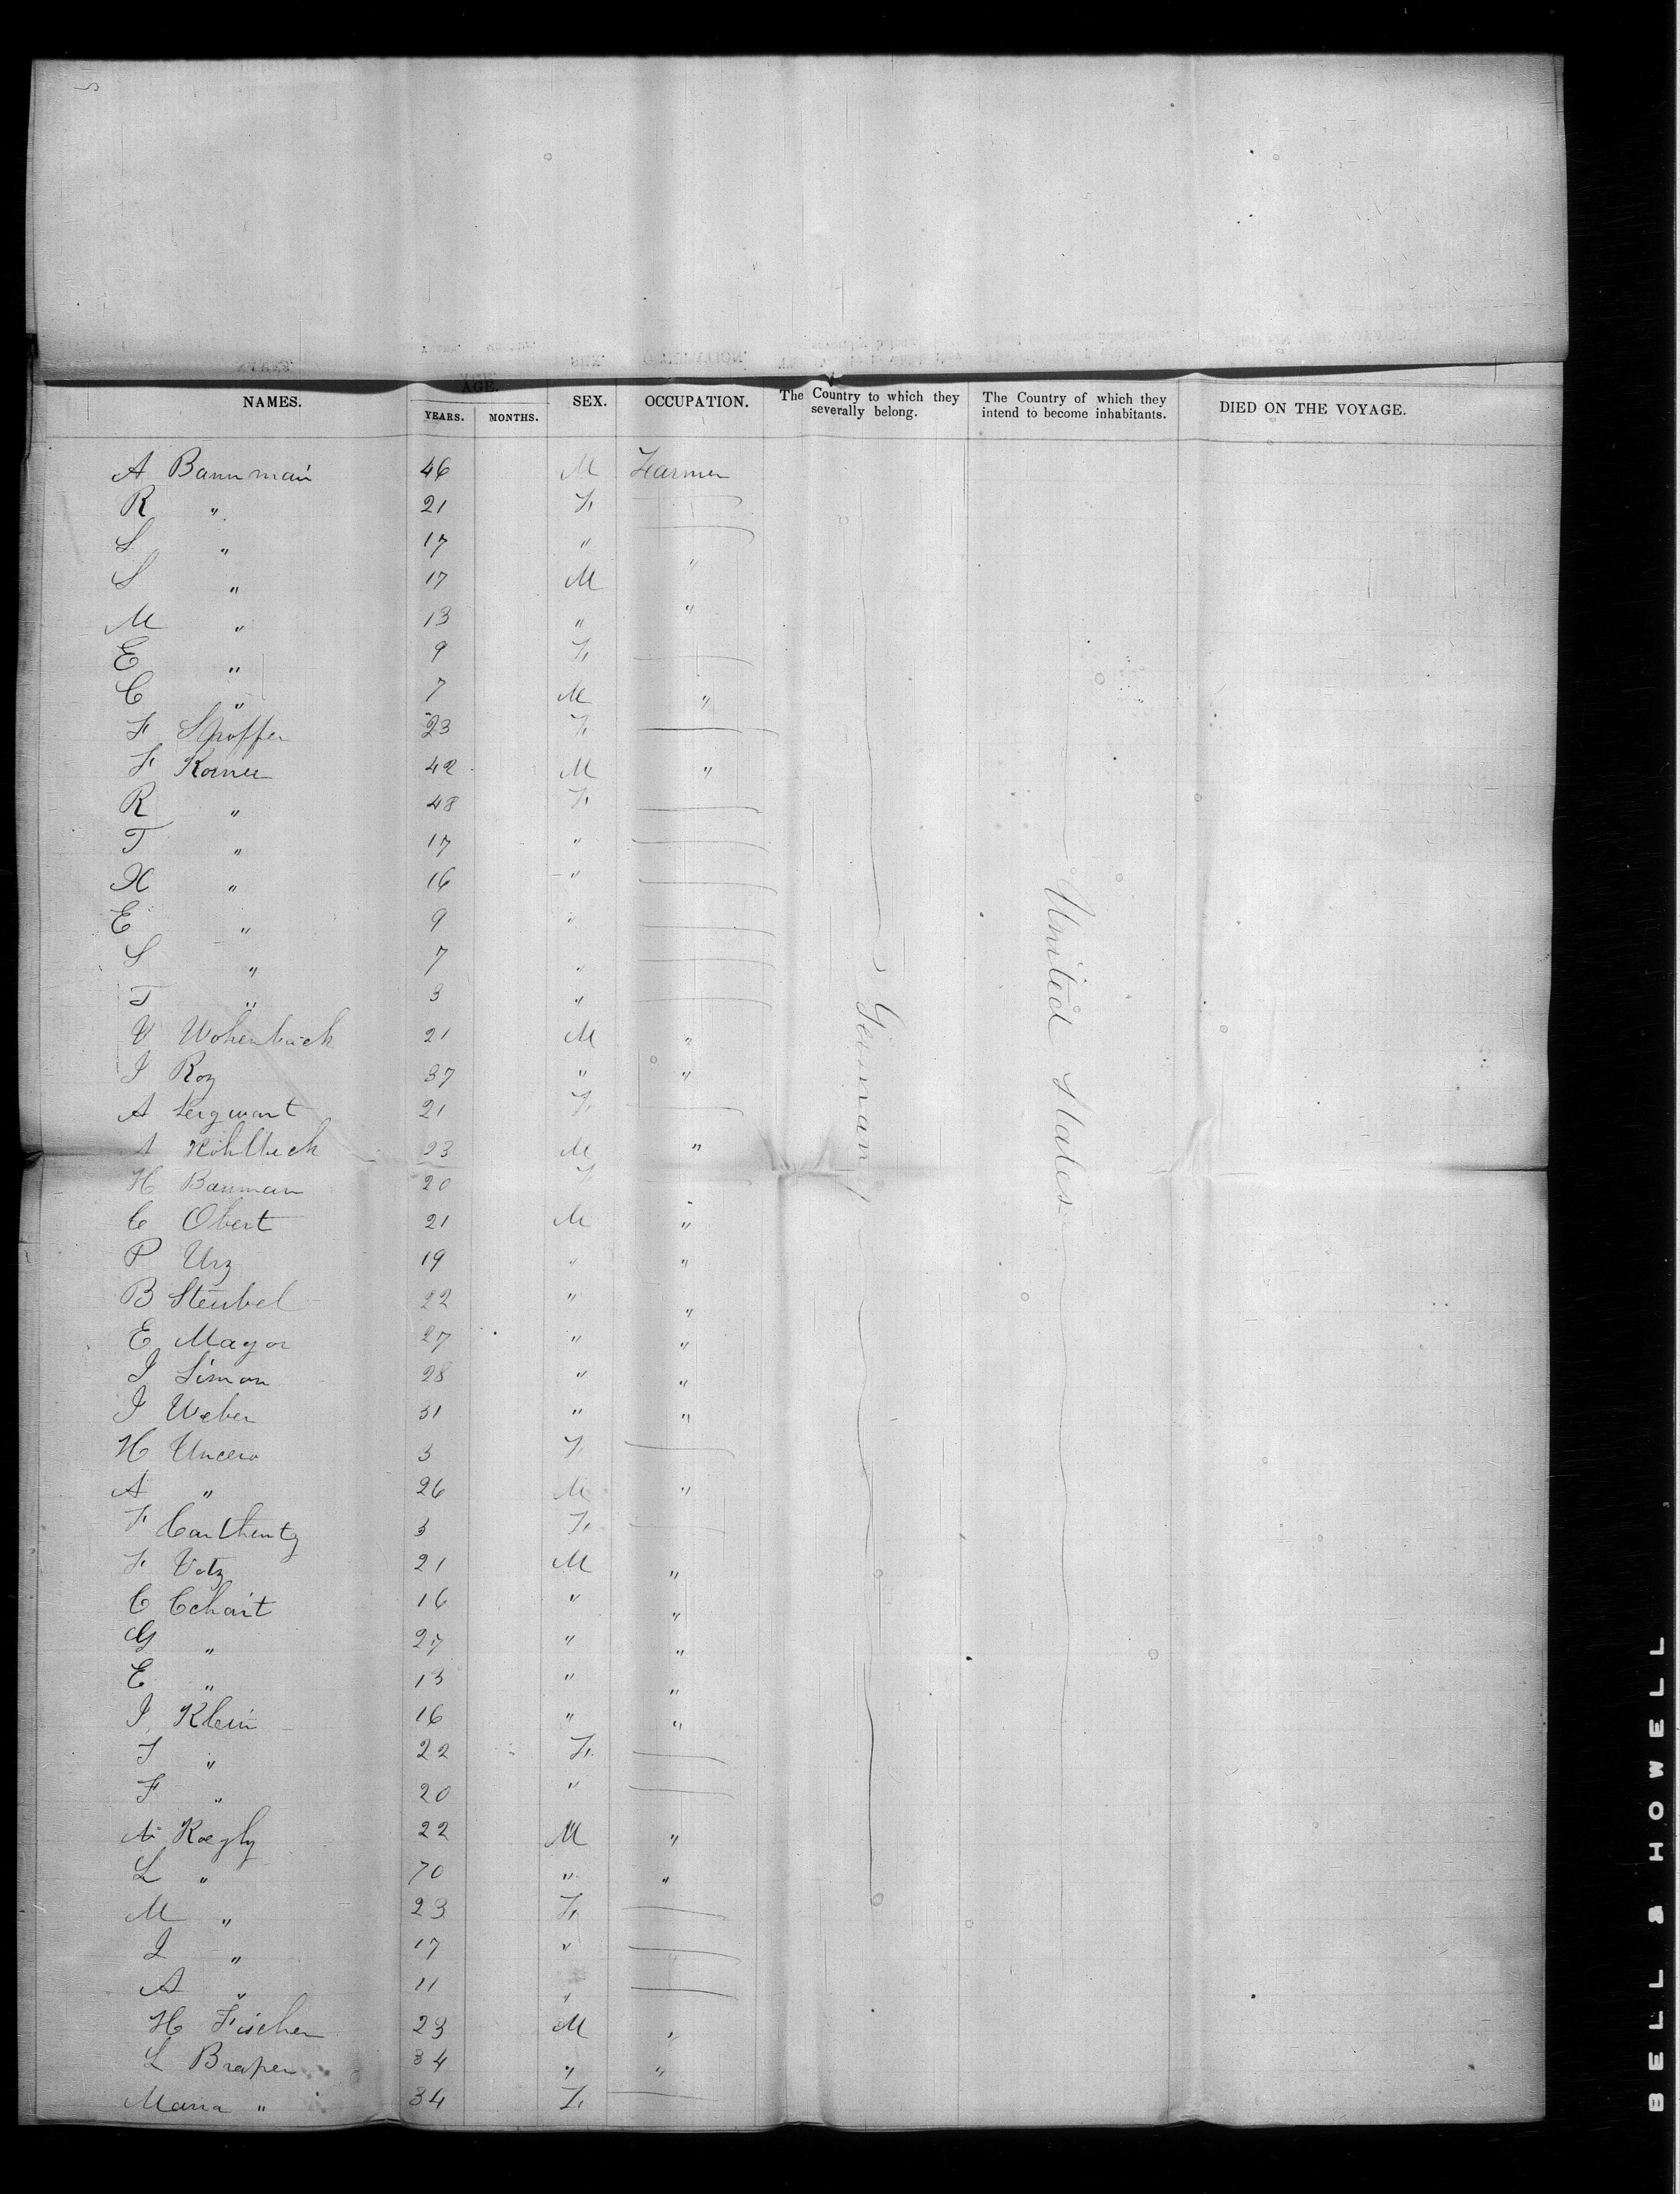 AGE.
NAMES. YEARS. MONTHS. SEX. OCCUPATION. The Country to which they severally belong. The Country of which they intend to become inhabitants. DIED ON THE VOYAGE.
A Bannman 46 M Farmer
R " 21 F.
S " 17 "
S " 17 M "
M " 13 " "
E " 9 F.
C " 7 M "
F 23 F.
F 42 M "
R " 48 F.
T " 17 "
X " 16 "
E " 9 "
S " 7 "
T " 3 "
V Wohenback 21 M "
I Roz 37 " "
A 21 F.
A Kohlbeck 23 M "
H Bauman 20 F
C Obert 21 M "
P Urz 19 " "
B Steubel 22 " "
E Mayor 27 " "
I Simon 28 " "
I Weber 31 " "
H 3 F.
A " 26 M "
F 3 F.
F Votz 21 M "
C 16 " "
G " 27 " "
E " 13 " "
I. Klein 16 " "
I " 22 F.
F " 20 "
A Kægly 22 M "
L " 70 " "
M " 23 F.
I " 17 "
A " 11 "
H Fischer 23 M "
L Braper 34 " "
Maria " 34 F.
Germany
United States
BELL & HOWELL